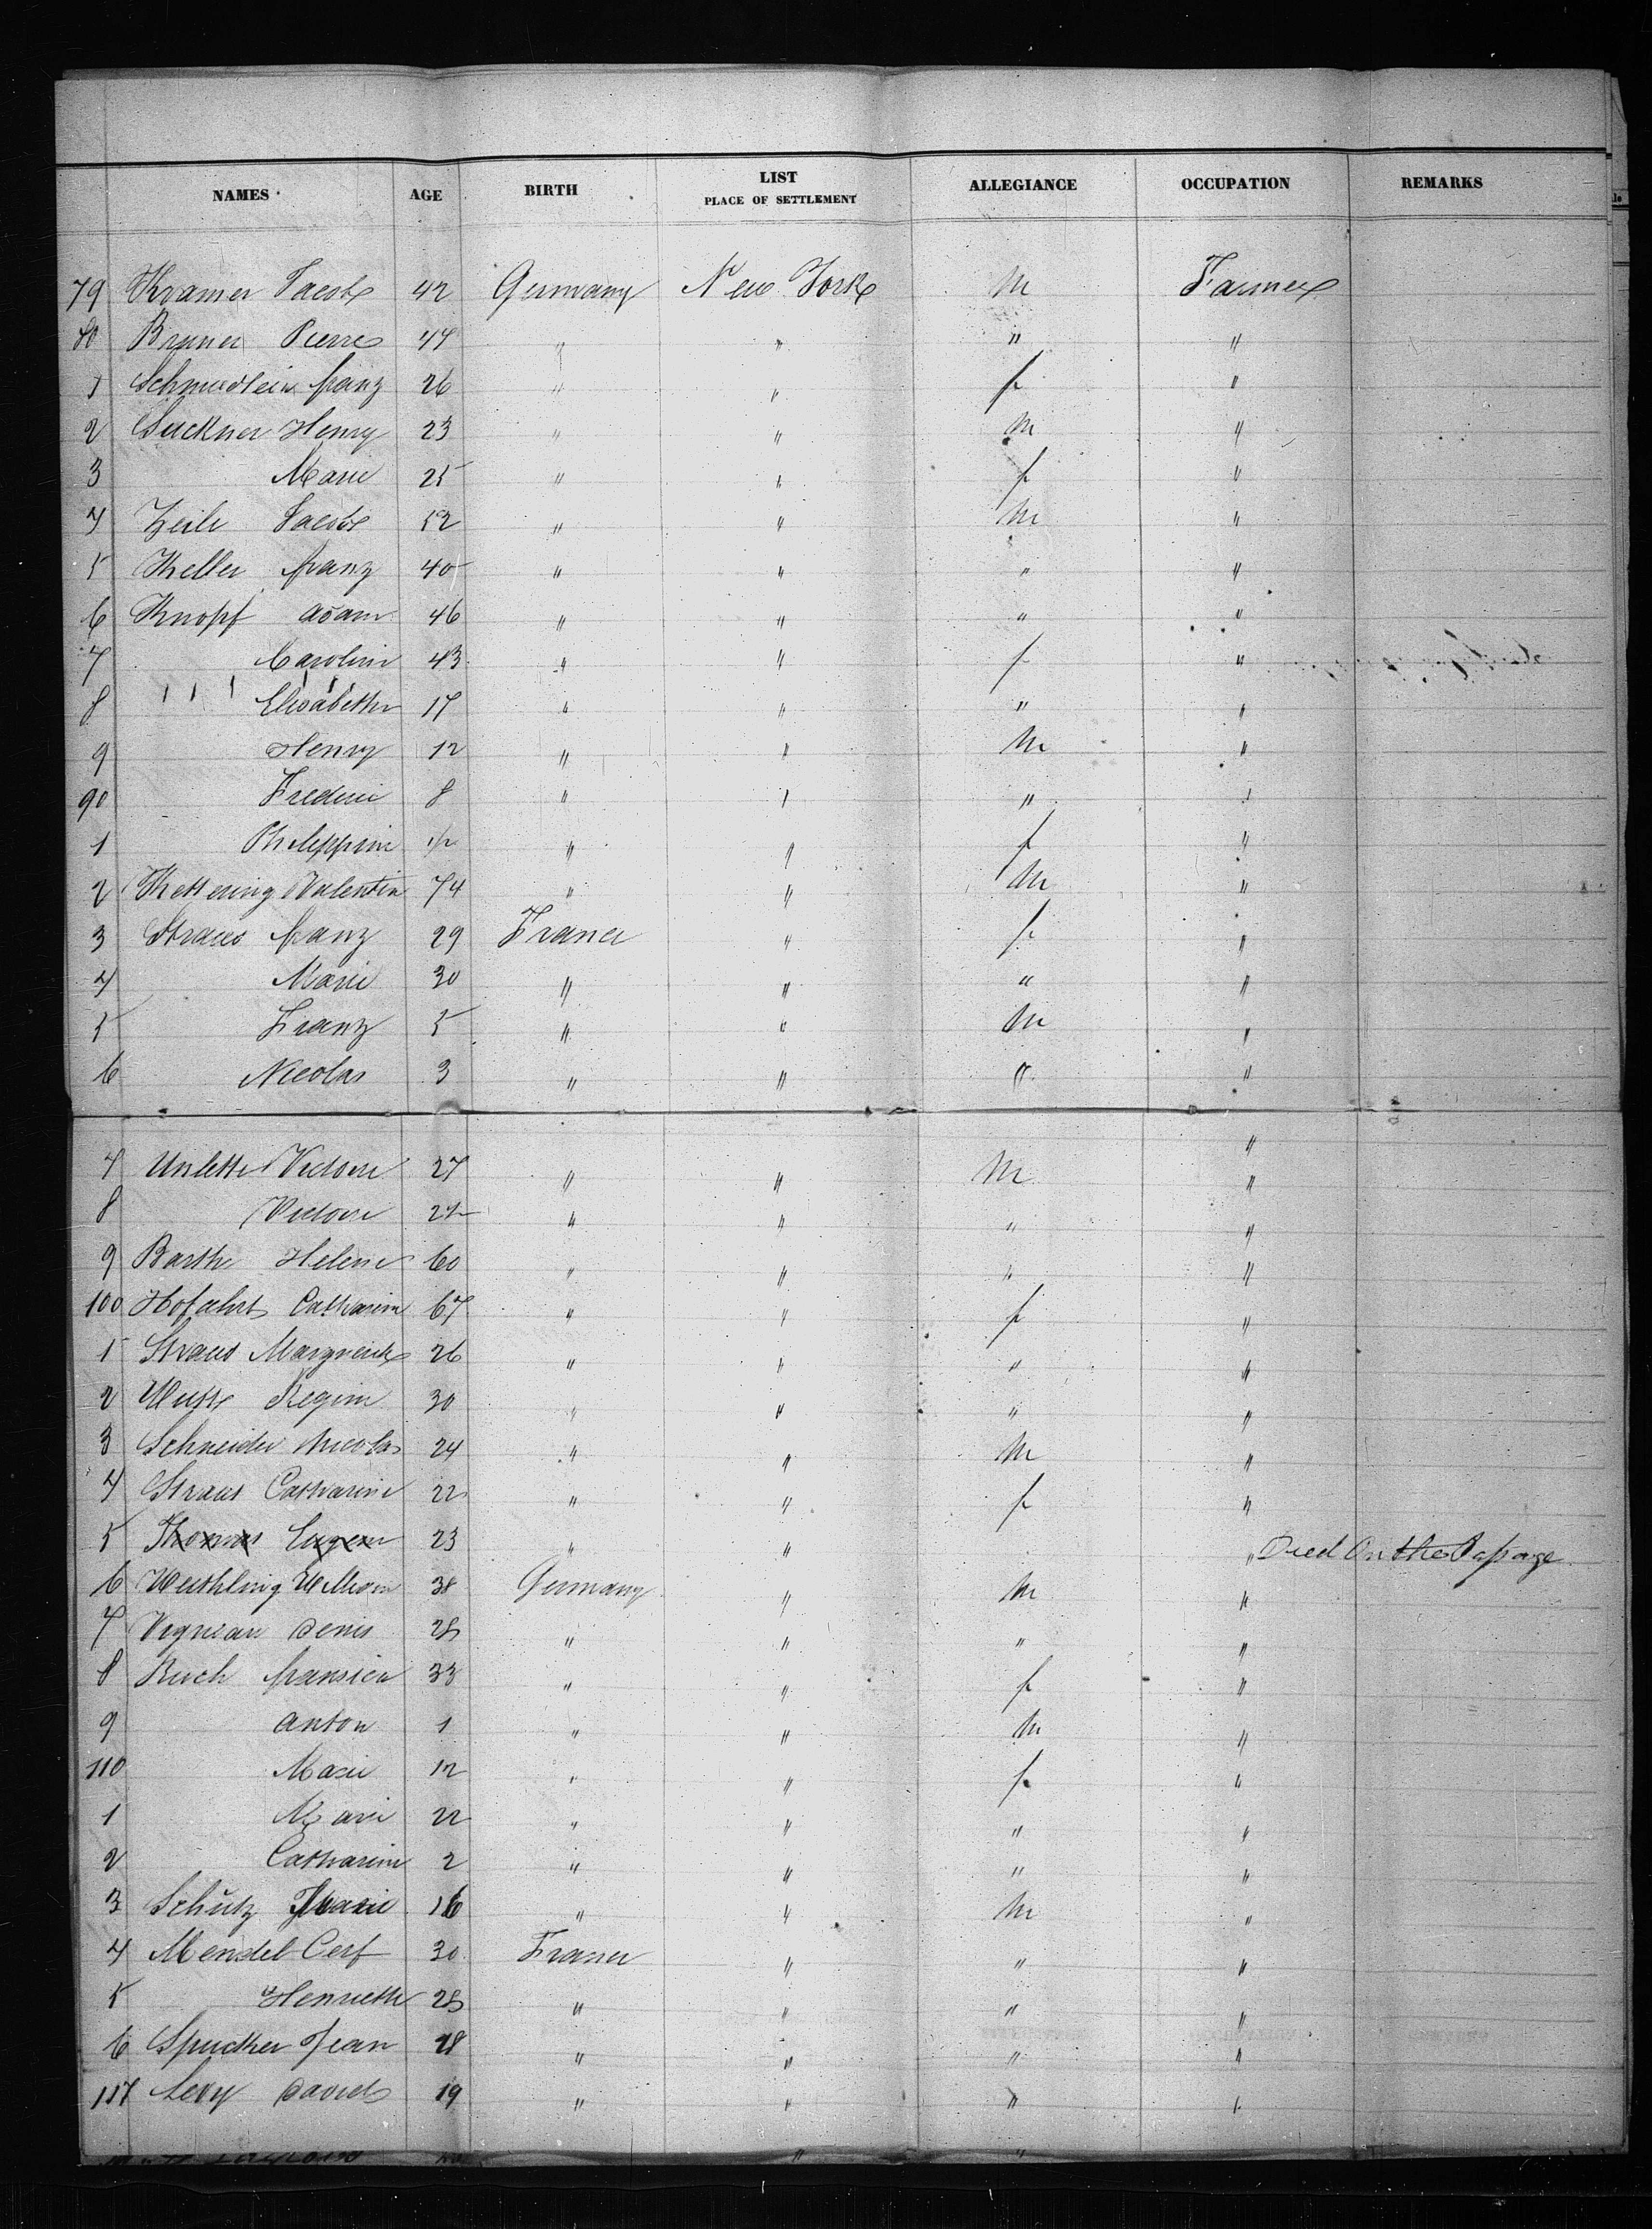 NAMES AGE BIRTH LIST PLACE OF SETTLEMENT ALLEGIANCE OCCUPATION REMARKS
79 Kramer Jacob 42 Germany New York M Farmer
80 Bruner Pierre 47 " " " "
1 Schmidlein franz 26 " " f "
2 Suckner Henry 23 " " M "
3 Marie 25 " " f "
4 Zeile Jacob 52 " " M "
5 Keller franz 40 " " " "
6 Knopf adam 46 " " " "
7 Carolin 43 " " f "
8 Elisabeth 17 " " " "
9 Henry 12 " " M "
90 Frederic 8 " " " "
1 Philippine 1/2 " " f "
2 Kettering Valentin 74 " " M "
3 Straus franz 29 France " f "
4 Marie 30 " " " "
5 Franz 5 " " M "
6 Nicolas 3 " " " "
"
7 Victoire 27 " " M "
8 Victoire " " " "
9 Barth Helene 60 " " " "
100 Hofahrt Catharine 67 " " f "
1 Straus Marguerite 26 " " " "
2 Regine 30 " " " "
3 Schneider Nicolas 24 " " M "
4 Straus Catharine 22 " " f "
5 Thomas Eugene 23 " " " Died On the Passage
6 William 38 Germany " M "
7 Vigneau Denis 28 " " " "
8 Ruch fransica 33 " " f "
9 anton 1 " " M "
110 Marie 12 " " f "
1 Marie 22 " " " "
2 Catharine 2 " " " "
3 Schütz 16 " " M "
4 Mendel Cerf 30 France " " "
5 Henriette 28 " " " "
6 Spucker Jean 28 " " " "
117 Levy David 19 " " " "